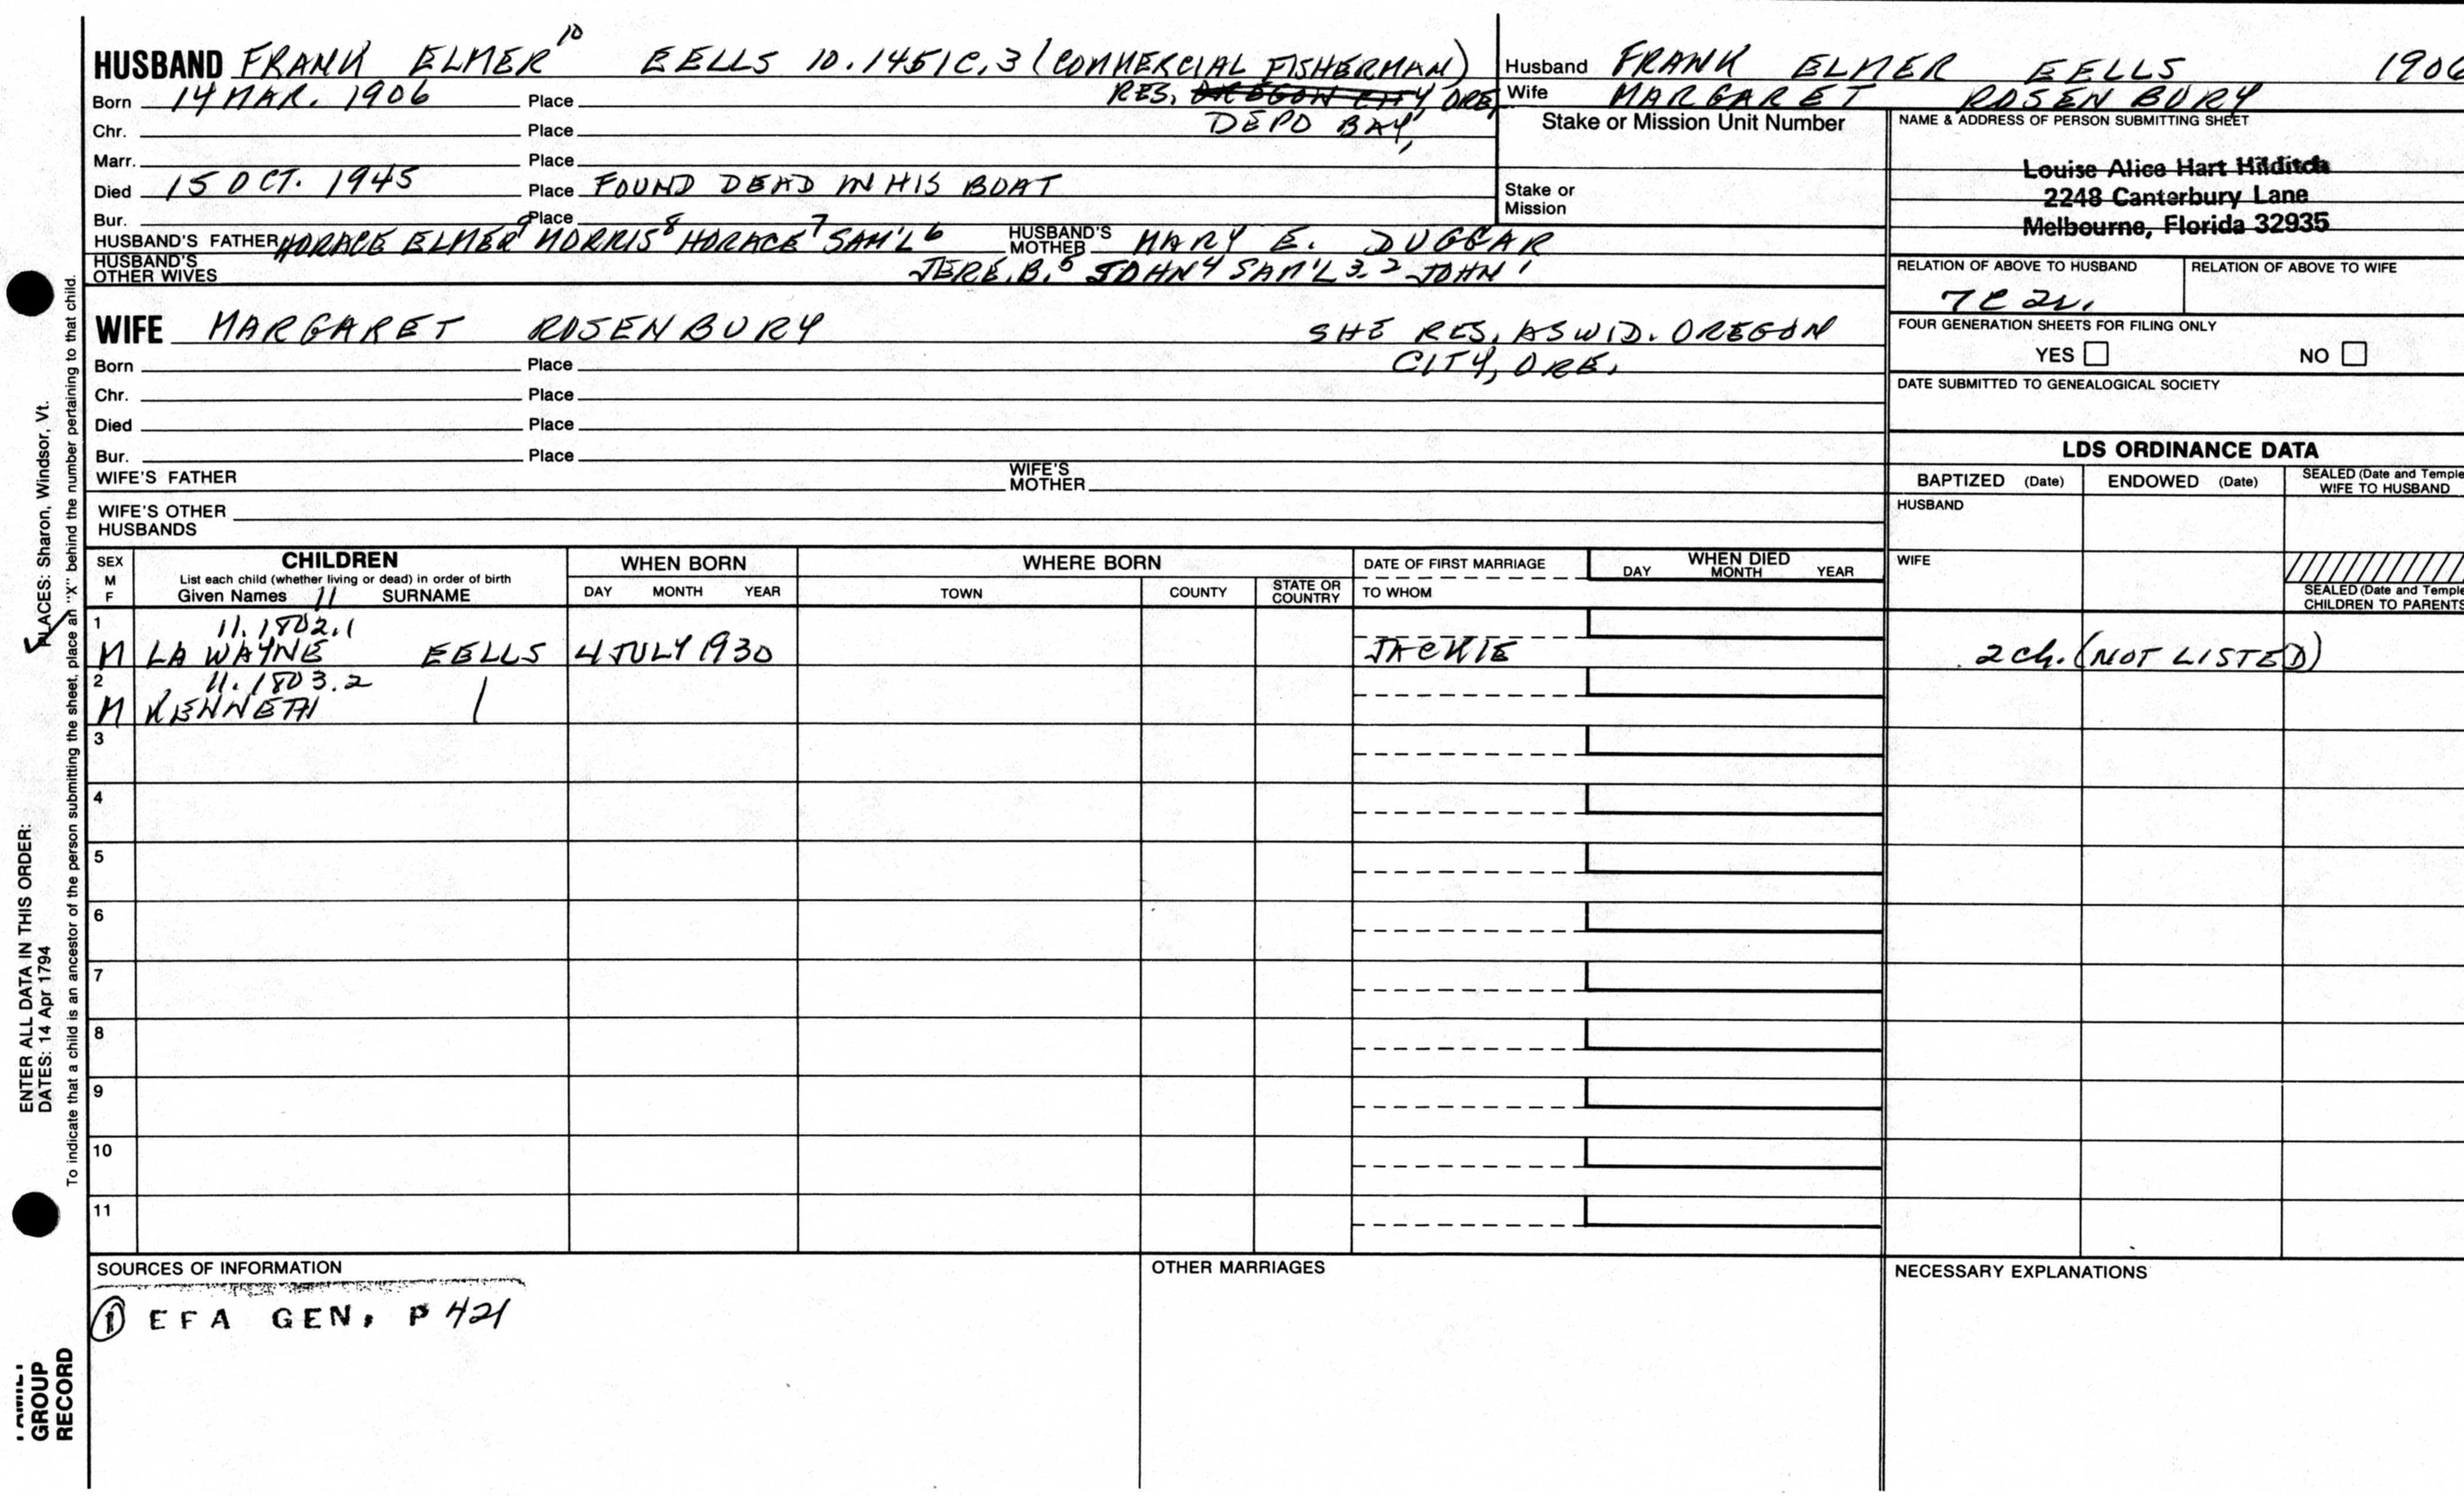 HUSBAND FRANK ELMER 10 EELLS 10.1451C.3 (COMMERCIAL FISHERMAN)
Born 14 MAR. 1906 Place RES. OREGON CITY, ORE
Chr. Place DEPO BAY,
Marr. Place
Died 15 OCT. 1945 Place FOUND DEAD IN HIS BOAT
Bur. Place
HUSBAND'S FATHER HORACE ELMER 9 NORRIS 8 HORACE 7 SAM'L 6 HUSBAND'S MOTHER MARY E. DUGGAR
HUSBAND'S OTHER WIVES JERE. B. 5 JOHN 4 SAM'L 3 2 JOHN 1
Husband FRANK ELMER EELLS 1906
Wife MARGARET ROSENBURY
Stake or Mission Unit Number
Stake or Mission
NAME & ADDRESS OF PERSON SUBMITTING SHEET
Louise Alice Hart Hilditch
2248 Canterbury Lane
Melbourne, Florida 32935
RELATION OF ABOVE TO HUSBAND RELATION OF ABOVE TO WIFE
7C 2r.
FOUR GENERATION SHEETS FOR FILING ONLY
YES NO
DATE SUBMITTED TO GENEALOGICAL SOCIETY
WIFE MARGARET ROSENBURY SHE RES. AS WID. OREGON
CITY, ORE.
Born Place
Chr. Place
Died Place
Bur. Place
WIFE'S FATHER WIFE'S MOTHER
WIFE'S OTHER HUSBANDS
LDS ORDINANCE DATA
BAPTIZED (Date) ENDOWED (Date) SEALED (Date and Temple
WIFE TO HUSBAND
HUSBAND
WIFE
SEALED (Date and Temple
CHILDREN TO PARENTS
SEX M F
CHILDREN
List each child (whether living or dead) in order of birth
Given Names 11 SURNAME
WHEN BORN
DAY MONTH YEAR
WHERE BORN
TOWN COUNTY STATE OR COUNTRY
DATE OF FIRST MARRIAGE
TO WHOM
WHEN DIED
DAY MONTH YEAR
1 11.1802.1
M LA WAYNE EELLS 4 JULY 1930 JACKIE 2 ch. (NOT LISTED)
2 11.1803.2
M KENNETH
3
4
5
6
7
8
9
10
11
SOURCES OF INFORMATION
1 EFA GEN. P 421
OTHER MARRIAGES
NECESSARY EXPLANATIONS
ENTER ALL DATA IN THIS ORDER:
DATES: 14 Apr 1794
PLACES: Sharon, Windsor, Vt.
To indicate that a child is an ancestor of the person submitting the sheet, place an "X" behind the number pertaining to that child.
FAMILY
GROUP
RECORD